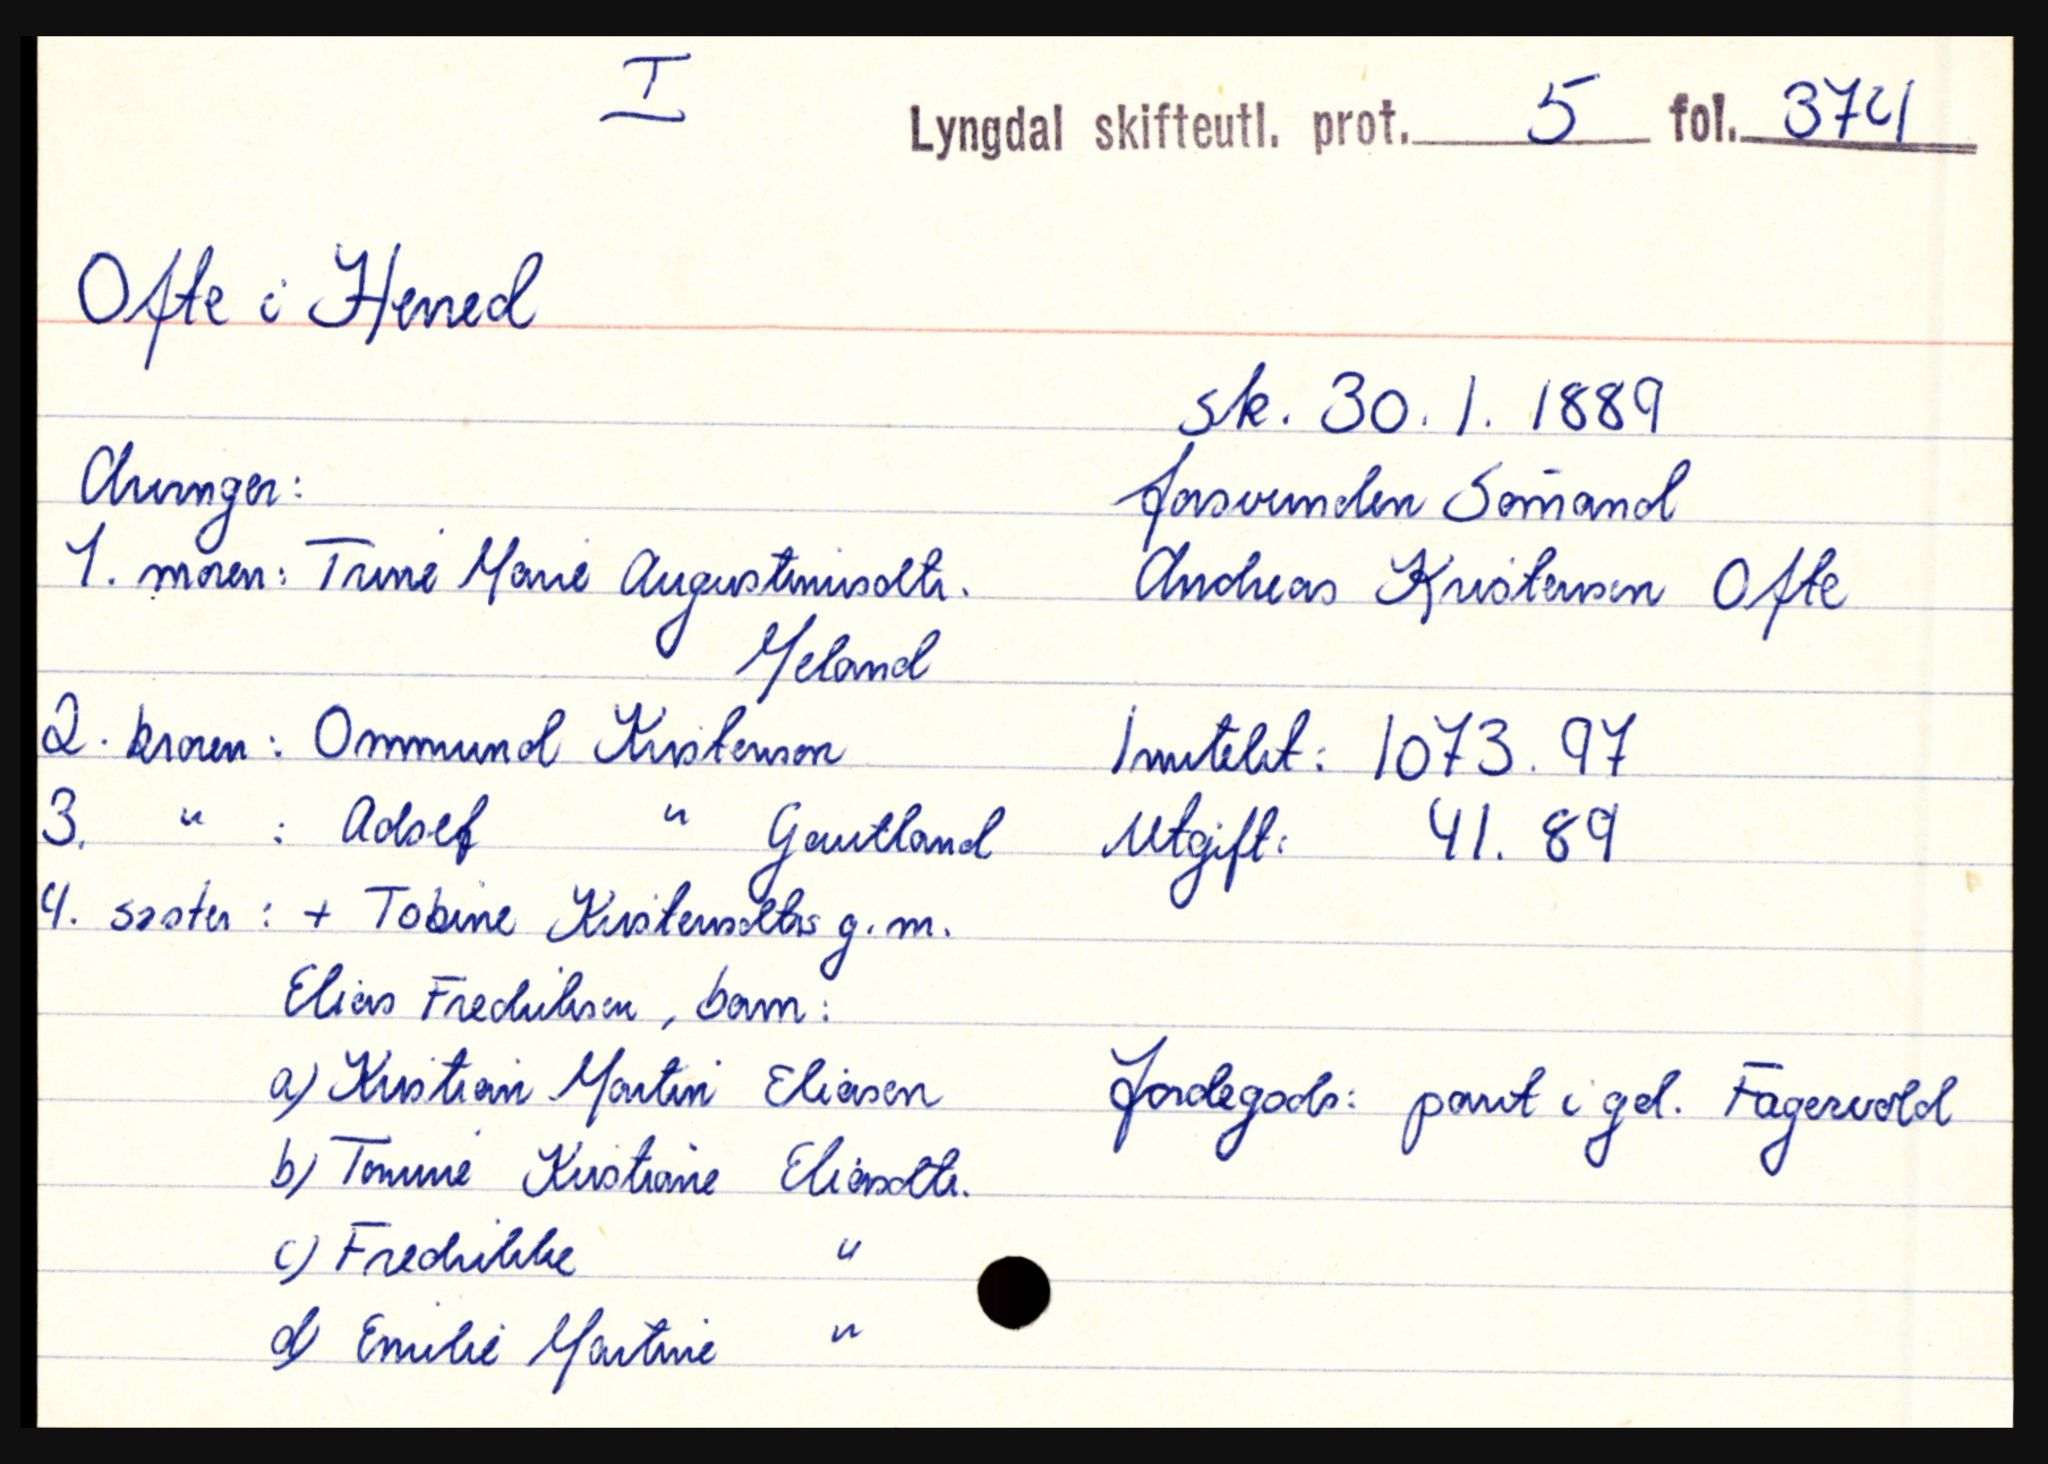 I
Lyngdal skifteutl. prot. 5 fol. 374
Ofte i Hered
sk. 30.1.1889
Arvinger:
forsvunden Sömand
1. moren: Trine Marie Augustinusdtr.
Andreas Kristensen Ofte
Meland
2. broren: Ommund Kristensen
Inntekt: 1073.97
3. " : Adolf " Gautland
Utgift: 41.89
4. søster: + Tobine Kristensdtrs g.m.
Elias Fredriksen, barn:
a) Kristian Martin Eliasen
Jordegods: part i gd. Fagervold
b) Tomine Kristiane Eliasdtr.
c) Fredrikke "
d) Emilie Martine "